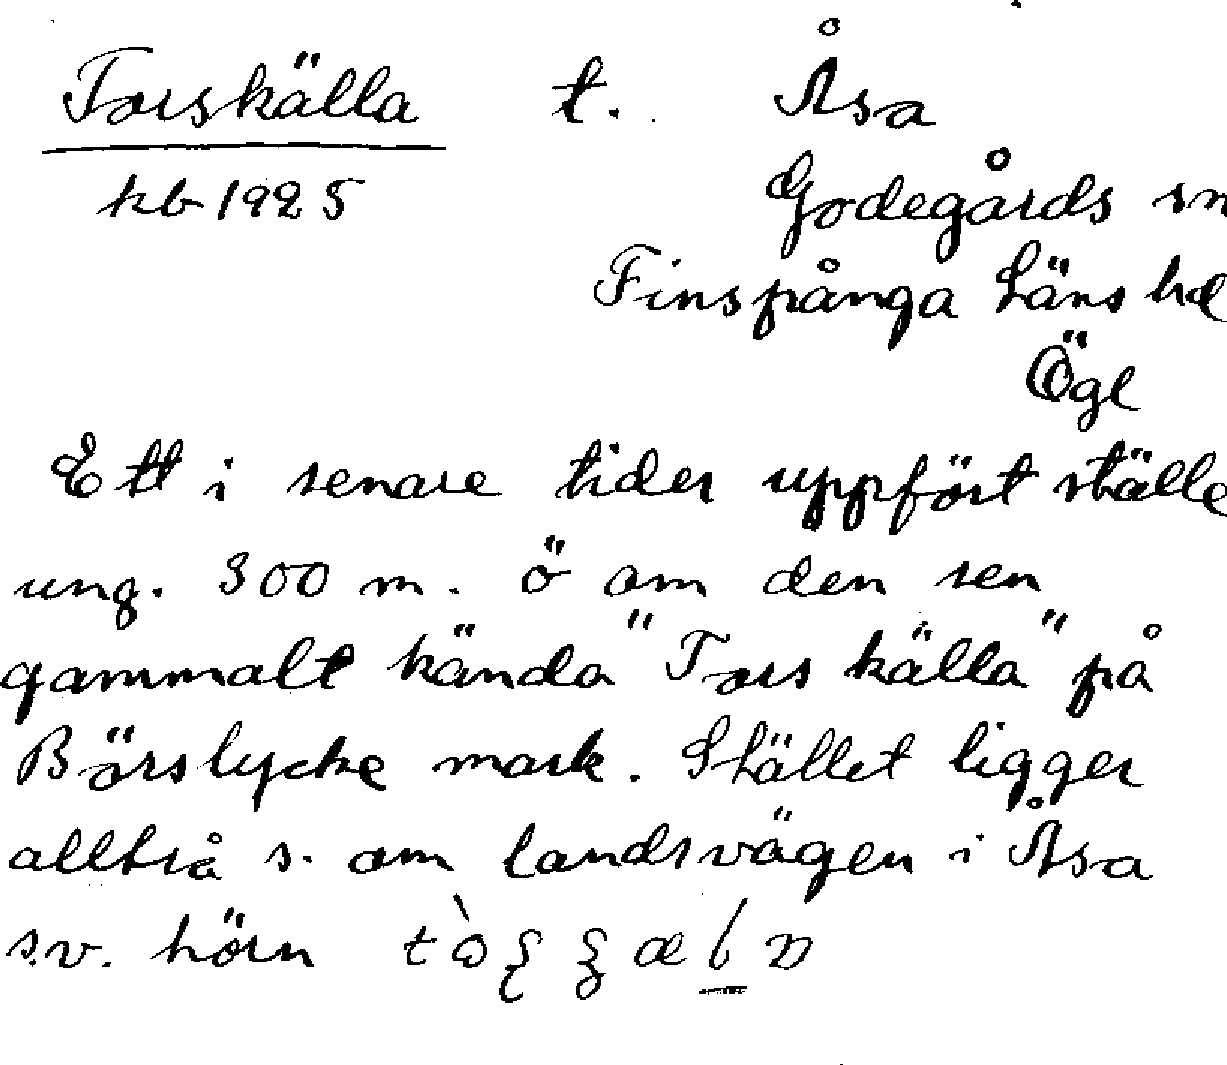 Torskälla t. Åsa
kb 1925 Godegårds sn
Finspånga Läns hd
Ögl
Ett i senare tider uppfört ställe
ung. 300 m. ö om den sen
gammalt kända "Tors källa" på
Börslycke mark. Stället ligger
alltså s. om landsvägen i Åsa
s.v. hörn